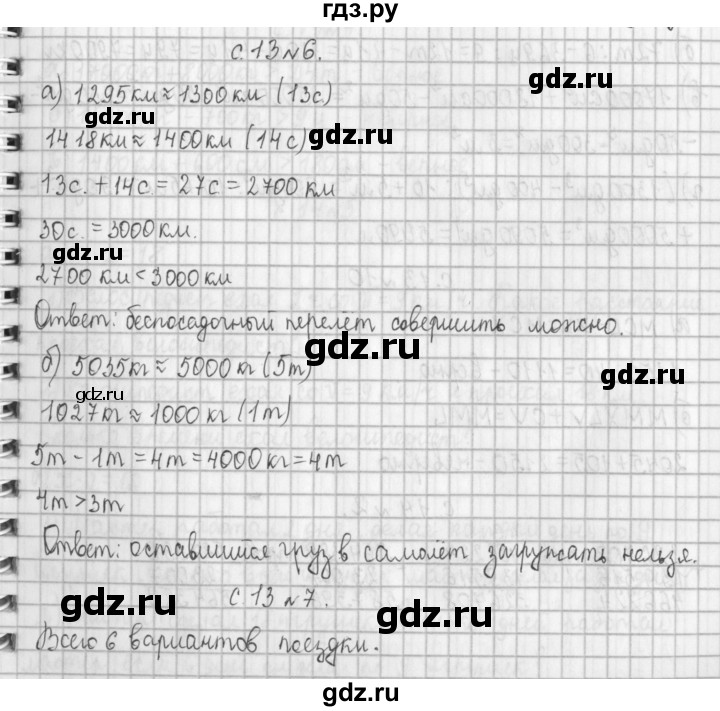 гдз.ру
с. 13 № 6.
а) 1295 км ≈ 1300 км (13с)
gdz.ru
gdz.ru
1418 км ≈ 1400 км (14с)
gdz.ru
13с. + 14с = 27с = 2700 км
30с. = 3000 км.
gdz.ru
2700 км < 3000 км
Ответ: беспосадочный перелёт совершить можно.
gdz.ru
б) 5035 кг ≈ 5000 кг (5т)
gdz.ru
gdz.ru
1027 кг ≈ 1000 кг (1т)
5т - 1т = 4т = 4000 кг = 4т
4т > 3т
Ответ: оставшийся груз в самолёт загружать нельзя.
с. 13 № 7.
gdz.ru
gdz.ru
Всего 6 вариантов поездки.
gdz.ru